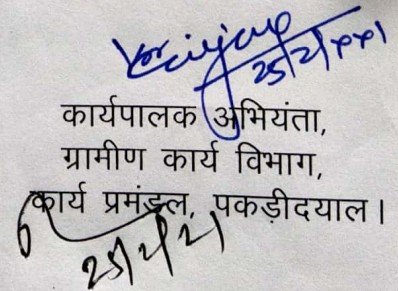 25/2/2021
कार्यपालक अभियंता,
ग्रामीण कार्य विभाग,
कार्य प्रमंडल, पकड़ीदयाल।
25/2/21